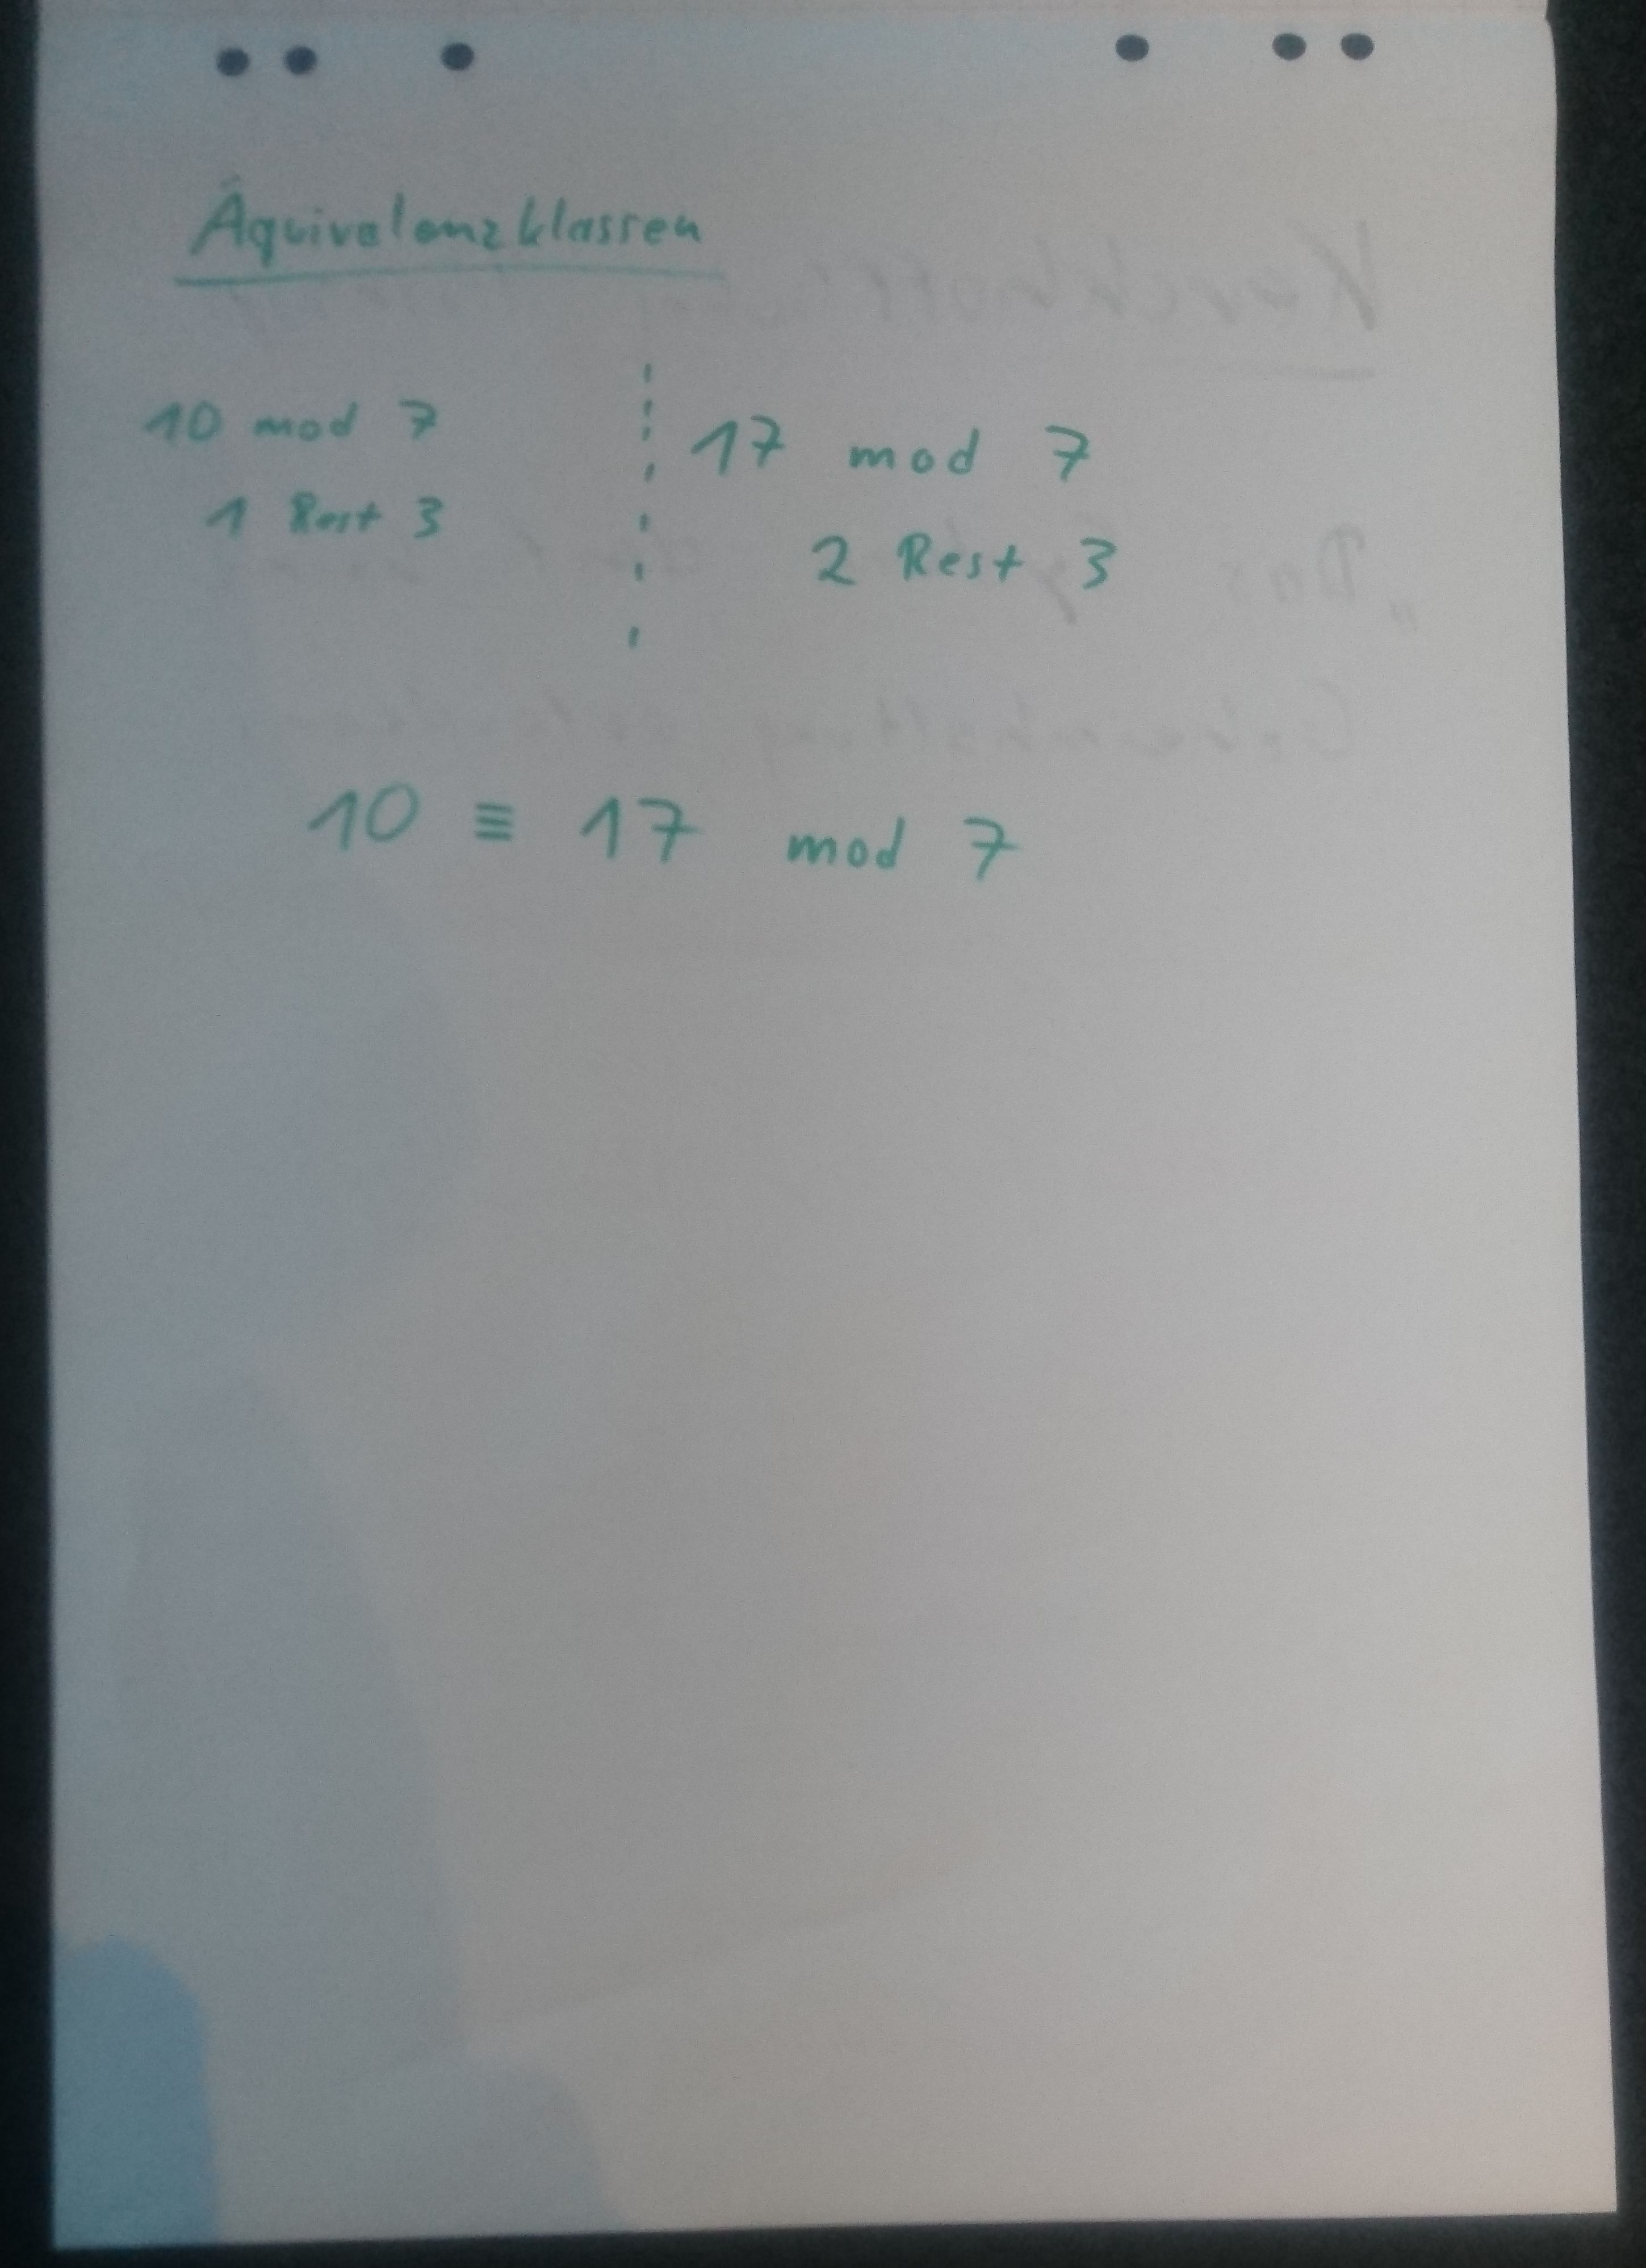 Äquivalenzklassen
10 mod 7
1 Rest 3
17 mod 7
2 Rest 3
10 ≡ 17 mod 7